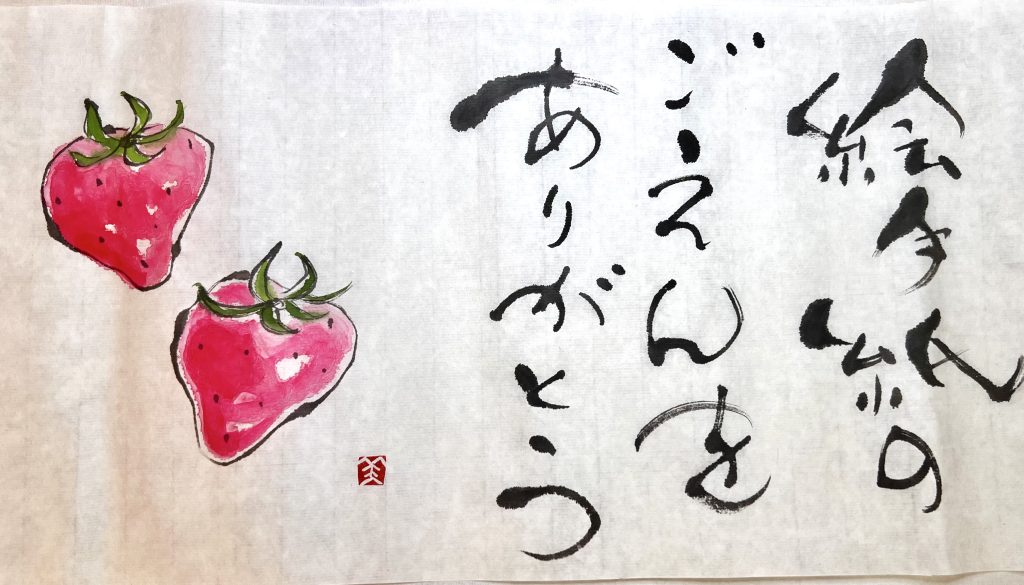 絵手紙の
ごえんを
ありがとう
美